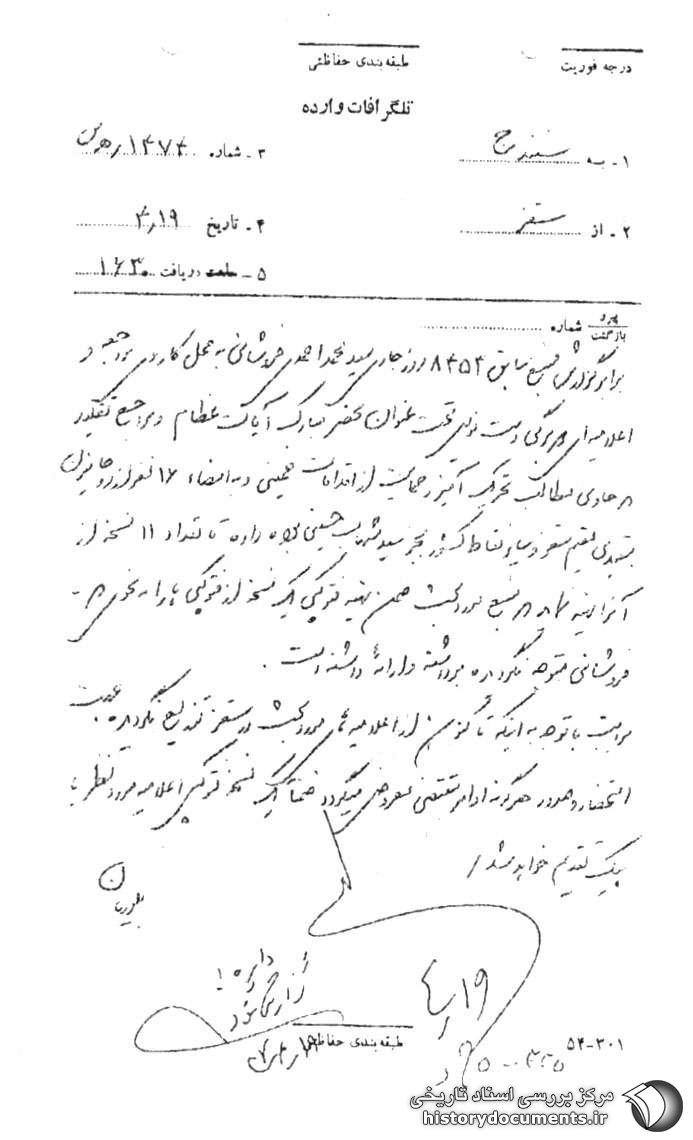 درجه فوریت
طبقه‌بندی حفاظتی
تلگرافات وارده
۱ - به سنندج
۲ - از سقز
۳ - شماره ۱۴۷۴
۴ - تاریخ ۴٫۱۹
۵ - ساعت دریافت ۱۶۳۰
پیرو
بازگشت
شماره
برابر گزارش منبع سابق ۸۴۵۴ روز جاری سید محمد احمدی فروشانی به محل کار وی مراجعه و
اعلامیه‌ای دست نویس تحت عنوان محضر مبارک آیات عظام و مراجع تقلید
در حاوی مطالب تحریک آمیز و حمایت از اقدامات خمینی و به امضاء ۱۶ نفر از روحانیون
تبعیدی مقیم سقز و سایر نقاط کشور داده تا تعداد ۱۱ نسخه از
آن تهیه نماید منبع مورد بحث ضمن تهیه فتوکپی یک نسخه از فتوکپی‌ها را به نحوی که
فروشانی متوجه نگردد برداشته و ارائه داشته است.
مراتب با توجه به اینکه تا کنون از اعلامیه مورد بحث در سقز توزیع نگردیده جهت
استحضار و صدور هرگونه اوامر مقتضی معروض میگردد ضمناً یک نسخه فتوکپی اعلامیه مورد نظر با
پیک تقدیم خواهد شد /
دایره
گزارش شود
۴٫۱۹
طبقه‌بندی حفاظتی
۵۴-۳۰۱
مرکز بررسی اسناد تاریخی
historydocuments.ir